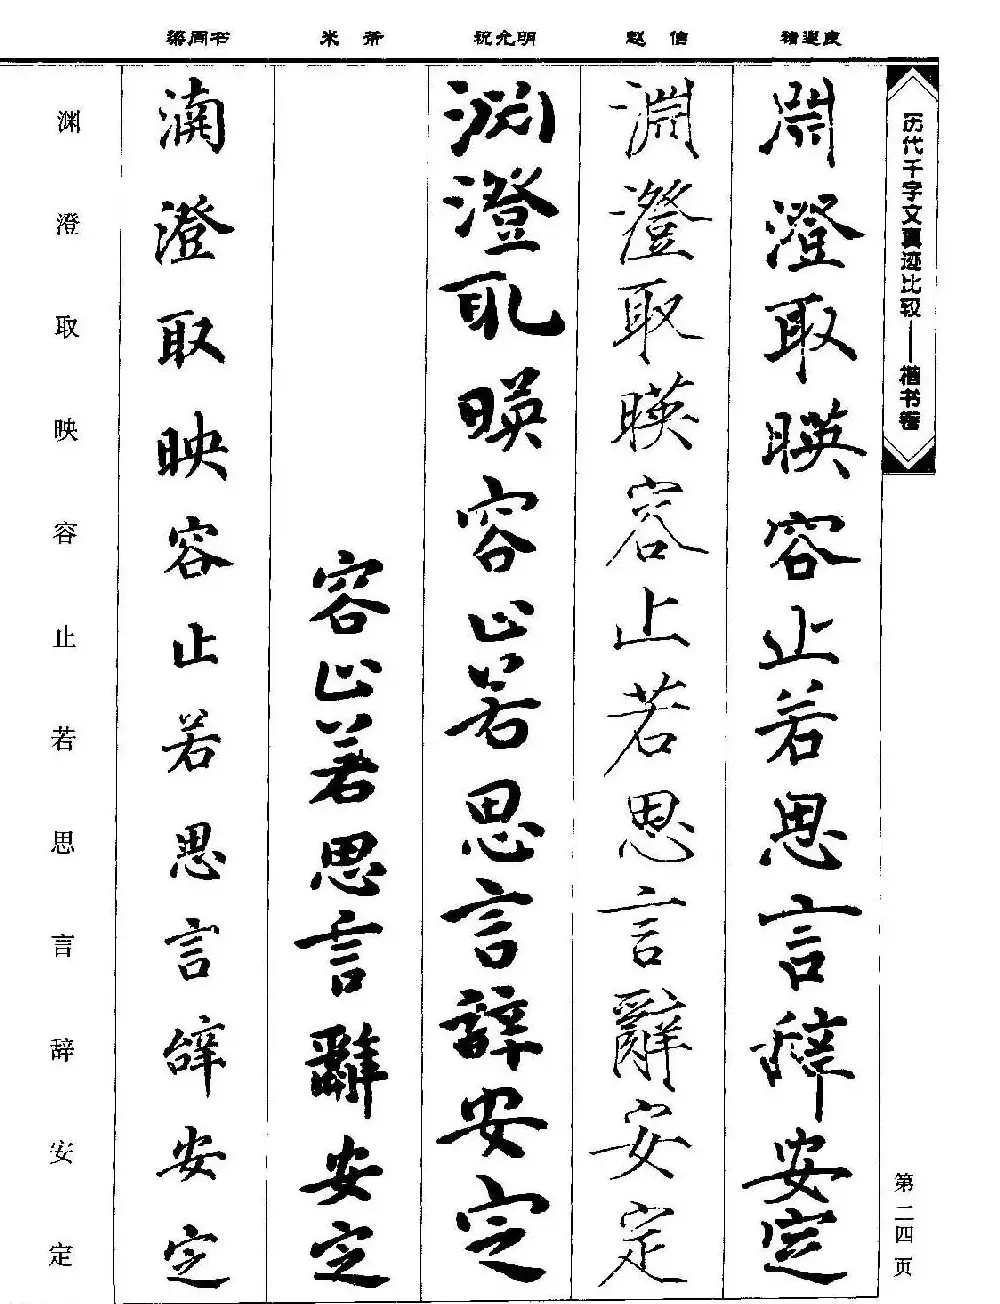 历代千字文真迹比较——楷书卷
第二四页
褚遂良
渊澄取暎容止若思言辞安定
赵佶
渊澄取暎容止若思言辭安定
祝允明
渊澄取暎容止若思言辞安定
米芾
容止若思言辭安定
梁同书
渊澄取映容止若思言辞安定
渊澄取映容止若思言辞安定